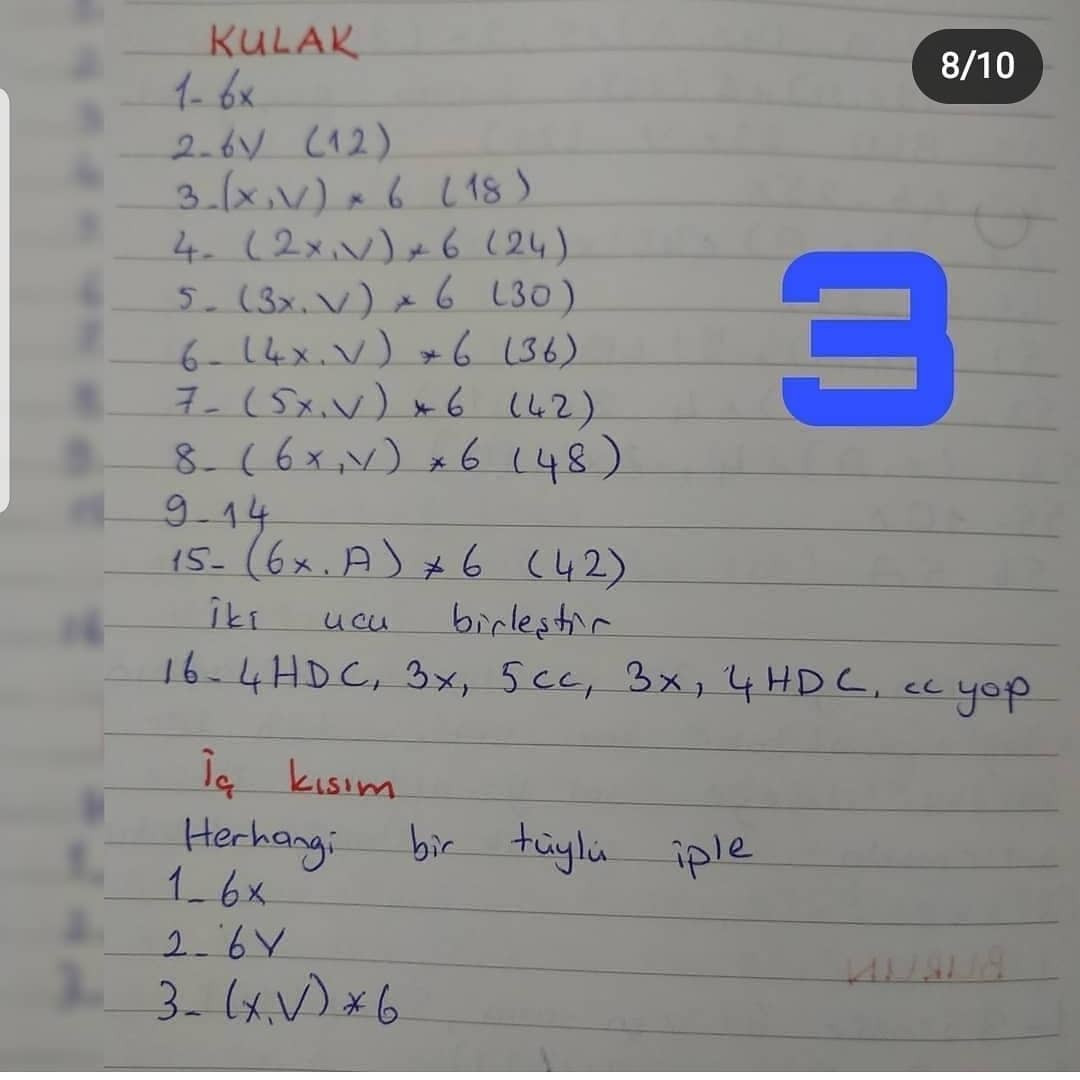 KULAK
8/10
1- 6x
2- 6V (12)
3-(x,V) * 6 (18)
4- (2x,V) * 6 (24)
3
5- (3x,V) * 6 (30)
6- (4x,V) * 6 (36)
7- (5x,V) * 6 (42)
8- (6x,V) * 6 (48)
9-14
15- (6x.A) * 6 (42)
İki ucu birleştir
16- 4HDC, 3x, 5cc, 3x, 4HDC, cc yap
İç kısım
Herhangi bir tüylü iple
1- 6x
2- 6V
3- (x,V) * 6
BURUN